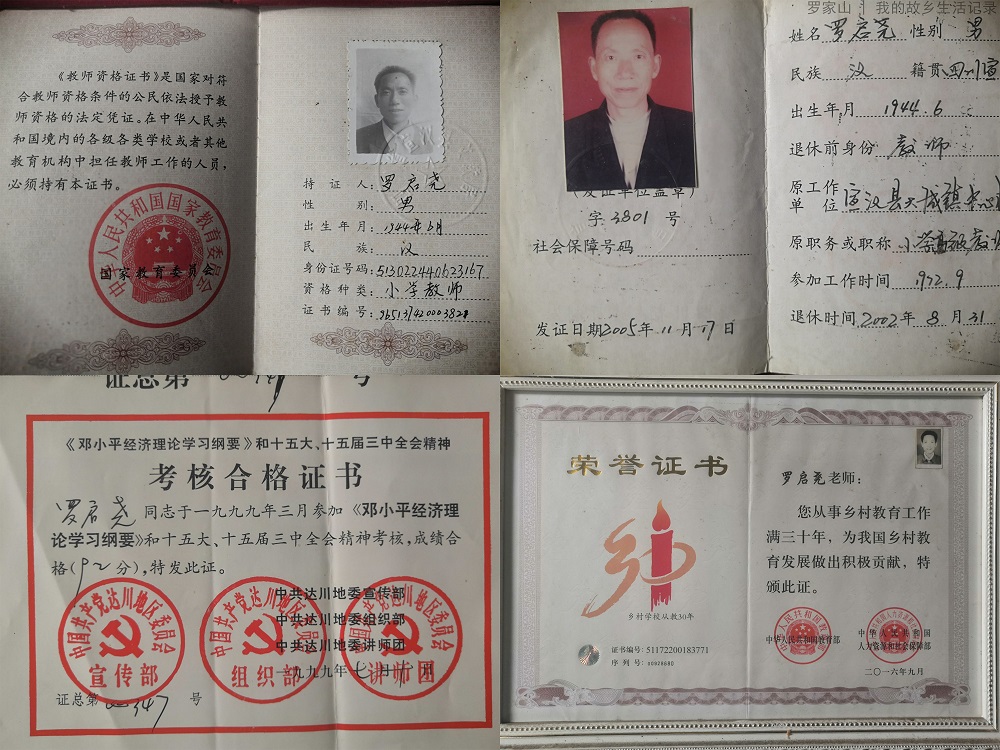 《教师资格证书》是国家对符
合教师资格条件的公民依法授予教
师资格的法定凭证。在中华人民共
和国境内的各级各类学校或者其他
教育机构中担任教师工作的人员，
必须持有本证书。
中华人民共和国国家教育委员会
国家教育委员会
持证人：罗启尧
性别：男
出生年月：1944年6月
民族：汉
身份证号码：513022440623167
资格种类：小学教师
证书编号：
罗家山 | 我的故乡生活记录
(发证单位盖章)
字3801号
社会保障号码
发证日期2005年11月17日
姓名罗启尧 性别 男
民族 汉 籍贯四川宣
出生年月 1944.6
退休前身份 教师
原工作
单位 宣汉县大成镇中心
原职务或职称 小学高级教师
参加工作时间 1972.9
退休时间2002年8月31
证总第 号
《邓小平经济理论学习纲要》和十五大、十五届三中全会精神
考核合格证书
罗启尧同志于一九九九年三月参加《邓小平经济理
论学习纲要》和十五大、十五届三中全会精神考核，成绩合
格(92分)，特发此证。
中共达川地委宣传部
中共达川地委组织部
中共达川地委讲师团
中国共产党达川地区委员会
宣传部
中国共产党达川地区委员会
组织部
中国共产党达川地区委员会
讲师团
一九九九年七月
证总第 347 号
荣誉证书
乡村学校从教30年
证书编号：51172200183771
序列号：
罗启尧老师：
您从事乡村教育工作
满三十年，为我国乡村教
育发展做出积极贡献，特
颁此证。
中华人民共和国教育部
中华人民共和国
人力资源和社会保障部
二〇一六年九月